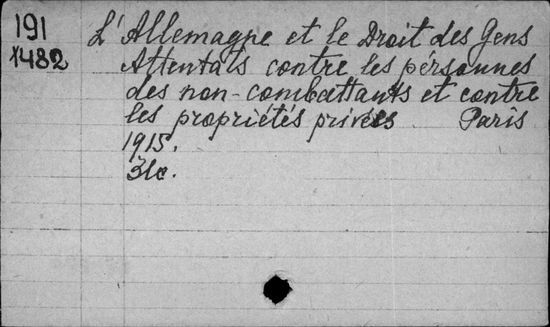 191
1482
L'Allemagne et le Droit des Gens
Attentats contre les pérsonnes
des non-combattants et contre
les propriétés privées Paris
1915.